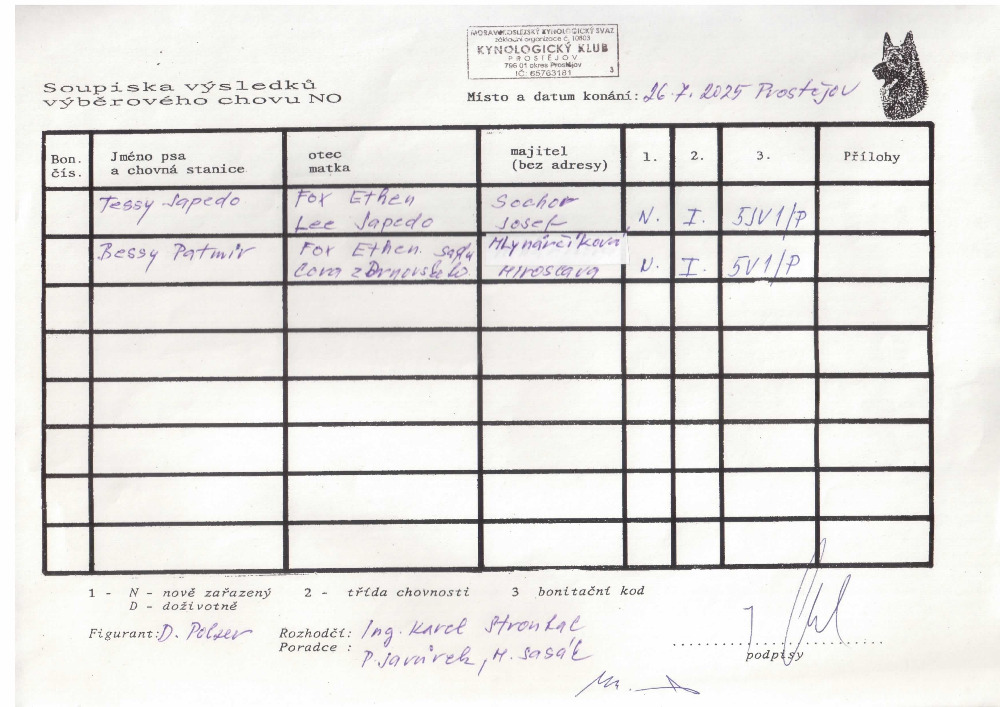 MORAVSKOSLEZSKÝ KYNOLOGICKÝ SVAZ
základní organizace č. 10603
KYNOLOGICKÝ KLUB
PROSTĚJOV
796 01 okres Prostějov
IČ: 65763181 3
Soupiska výsledků
výběrového chovu NO
Místo a datum konání: 26.7. 2025 Prostějov
Bon. čís. Jméno psa a chovná stanice otec matka majitel (bez adresy) 1. 2. 3. Přílohy
Tessy Japedo Fox Ethen Sochor
Lee Japedo Josef N. I. 5JV1/P
Bessy Patmir Fox Ethen Mlynárčiková
Cora z Drnovského Miroslava N. I. 5V1/P
1 - N - nově zařazený 2 - třída chovnosti 3 bonitační kod
D - doživotně
Figurant: D. Polzer Rozhodčí: Ing. Karel Strouhal
Poradce : P. Javůrek, M. Sasák
podpisy